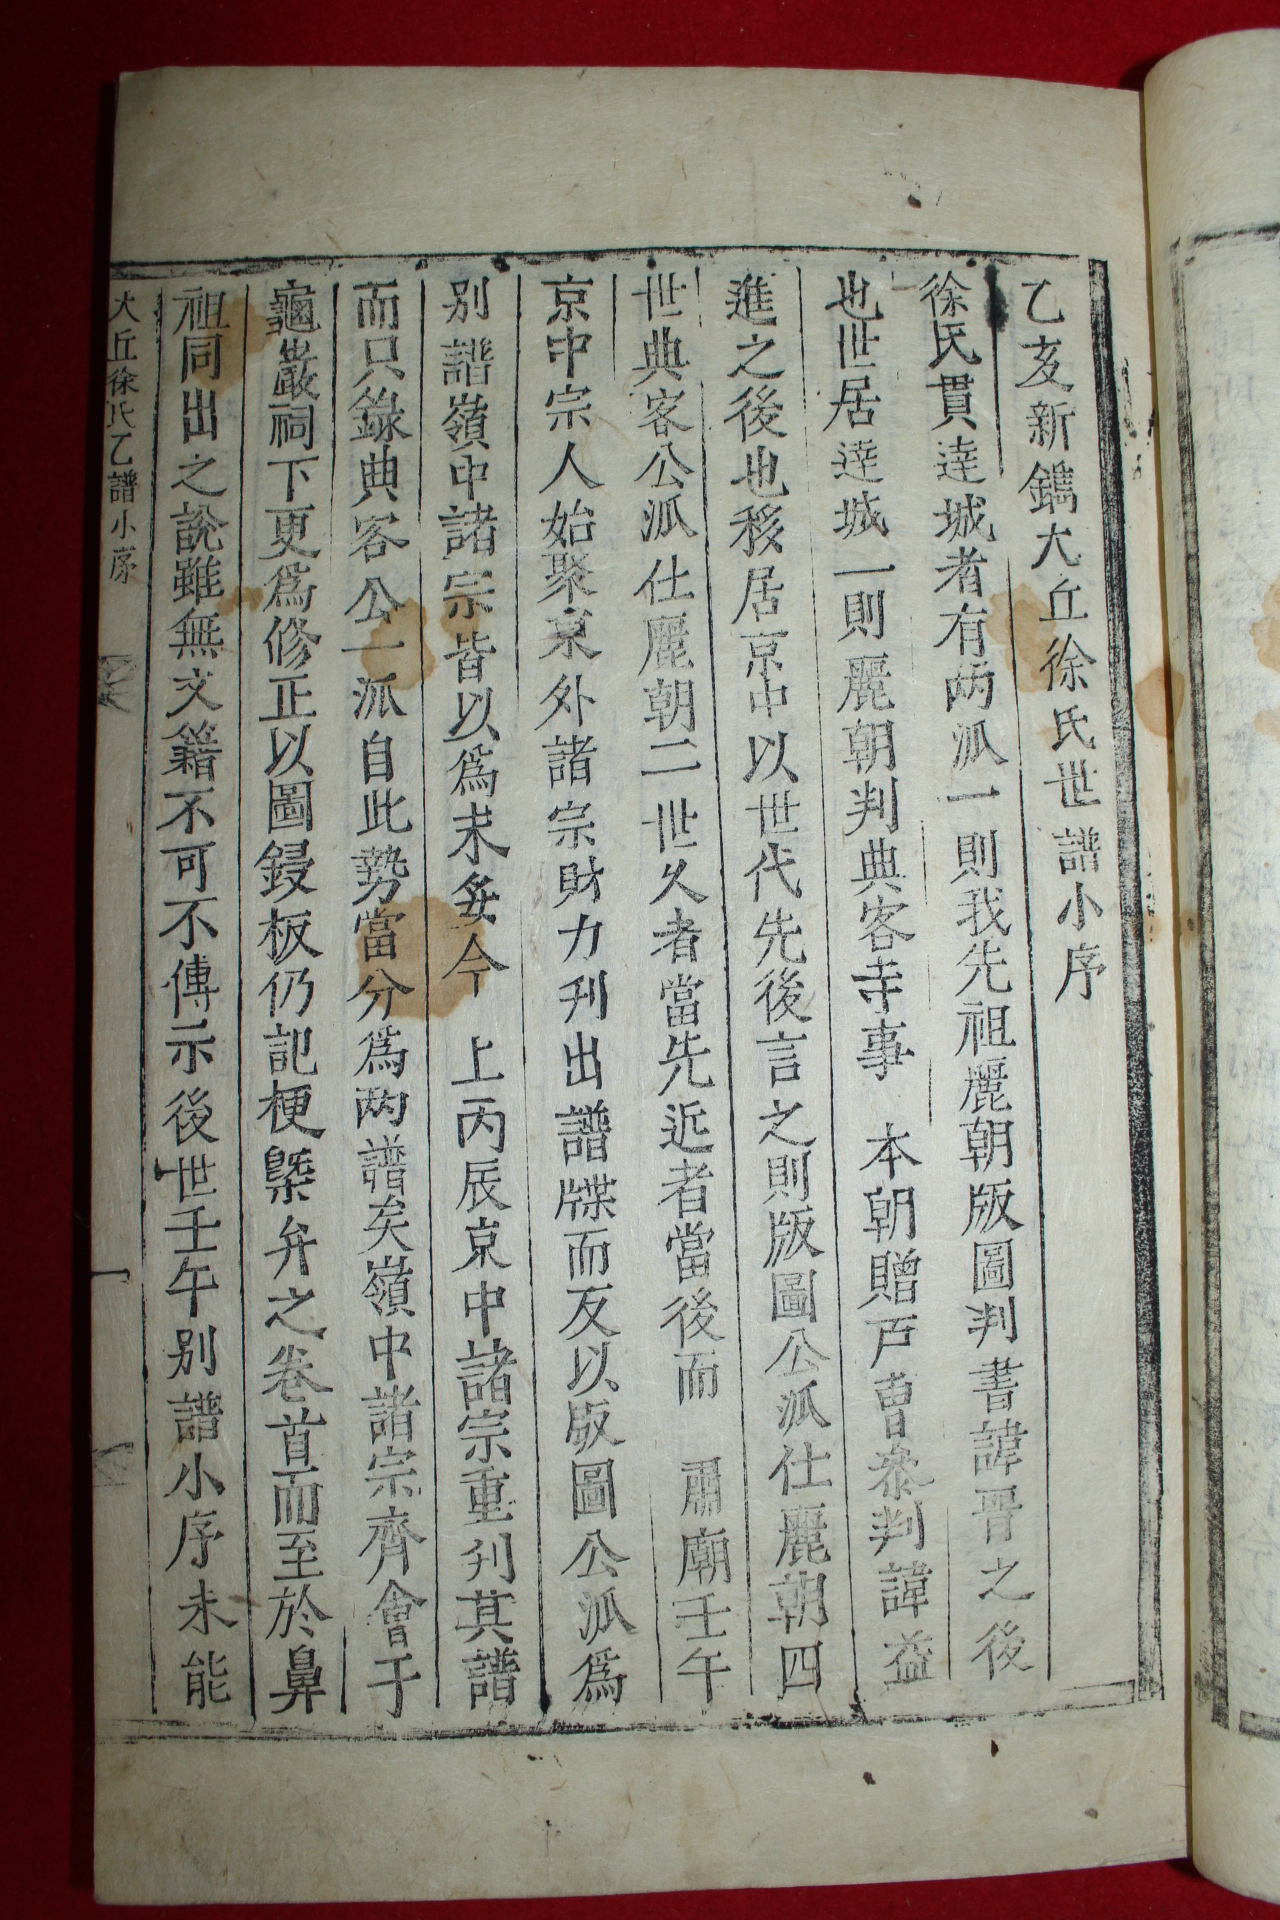 乙亥新鐫大丘徐氏世譜小序
徐氏貫達城者有两派一則我先祖麗朝版圖判書諱晋之後
也世居達城一則麗朝判典客寺事 本朝贈戶曹叅判諱益
進之後也移居京中以世代先後言之則版圖公派仕麗朝四
世典客公派仕麗朝二世久者當先近者當後而 肅廟壬午
京中宗人始聚京外諸宗財力刋出譜牒而反以版圖公派爲
别譜嶺中諸宗皆以爲未妥今 上丙辰京中諸宗重刋其譜
而只錄典客公一派自此勢當分爲两譜矣嶺中諸宗齊會于
龜巖祠下更爲修正以圖鋟板仍記梗槩弁之卷首而至於鼻
祖同出之說雖無文籍不可不傳示後世壬午别譜小序未能
大丘徐氏乙譜小序
一